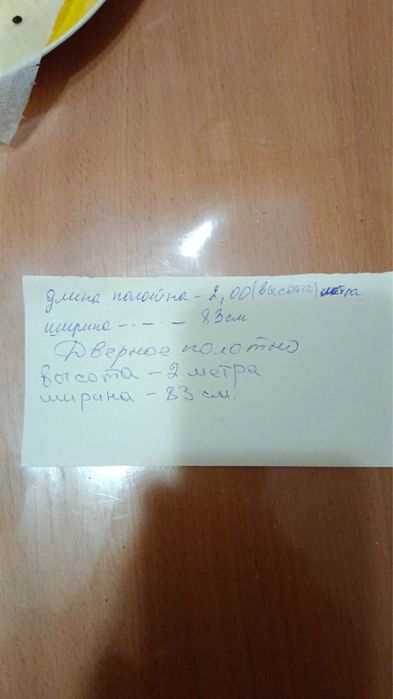 длина полотна - 2,00 (высота) метра
ширина - . - . - 83 см
Дверное полотно
высота - 2 метра
ширина - 83 см.